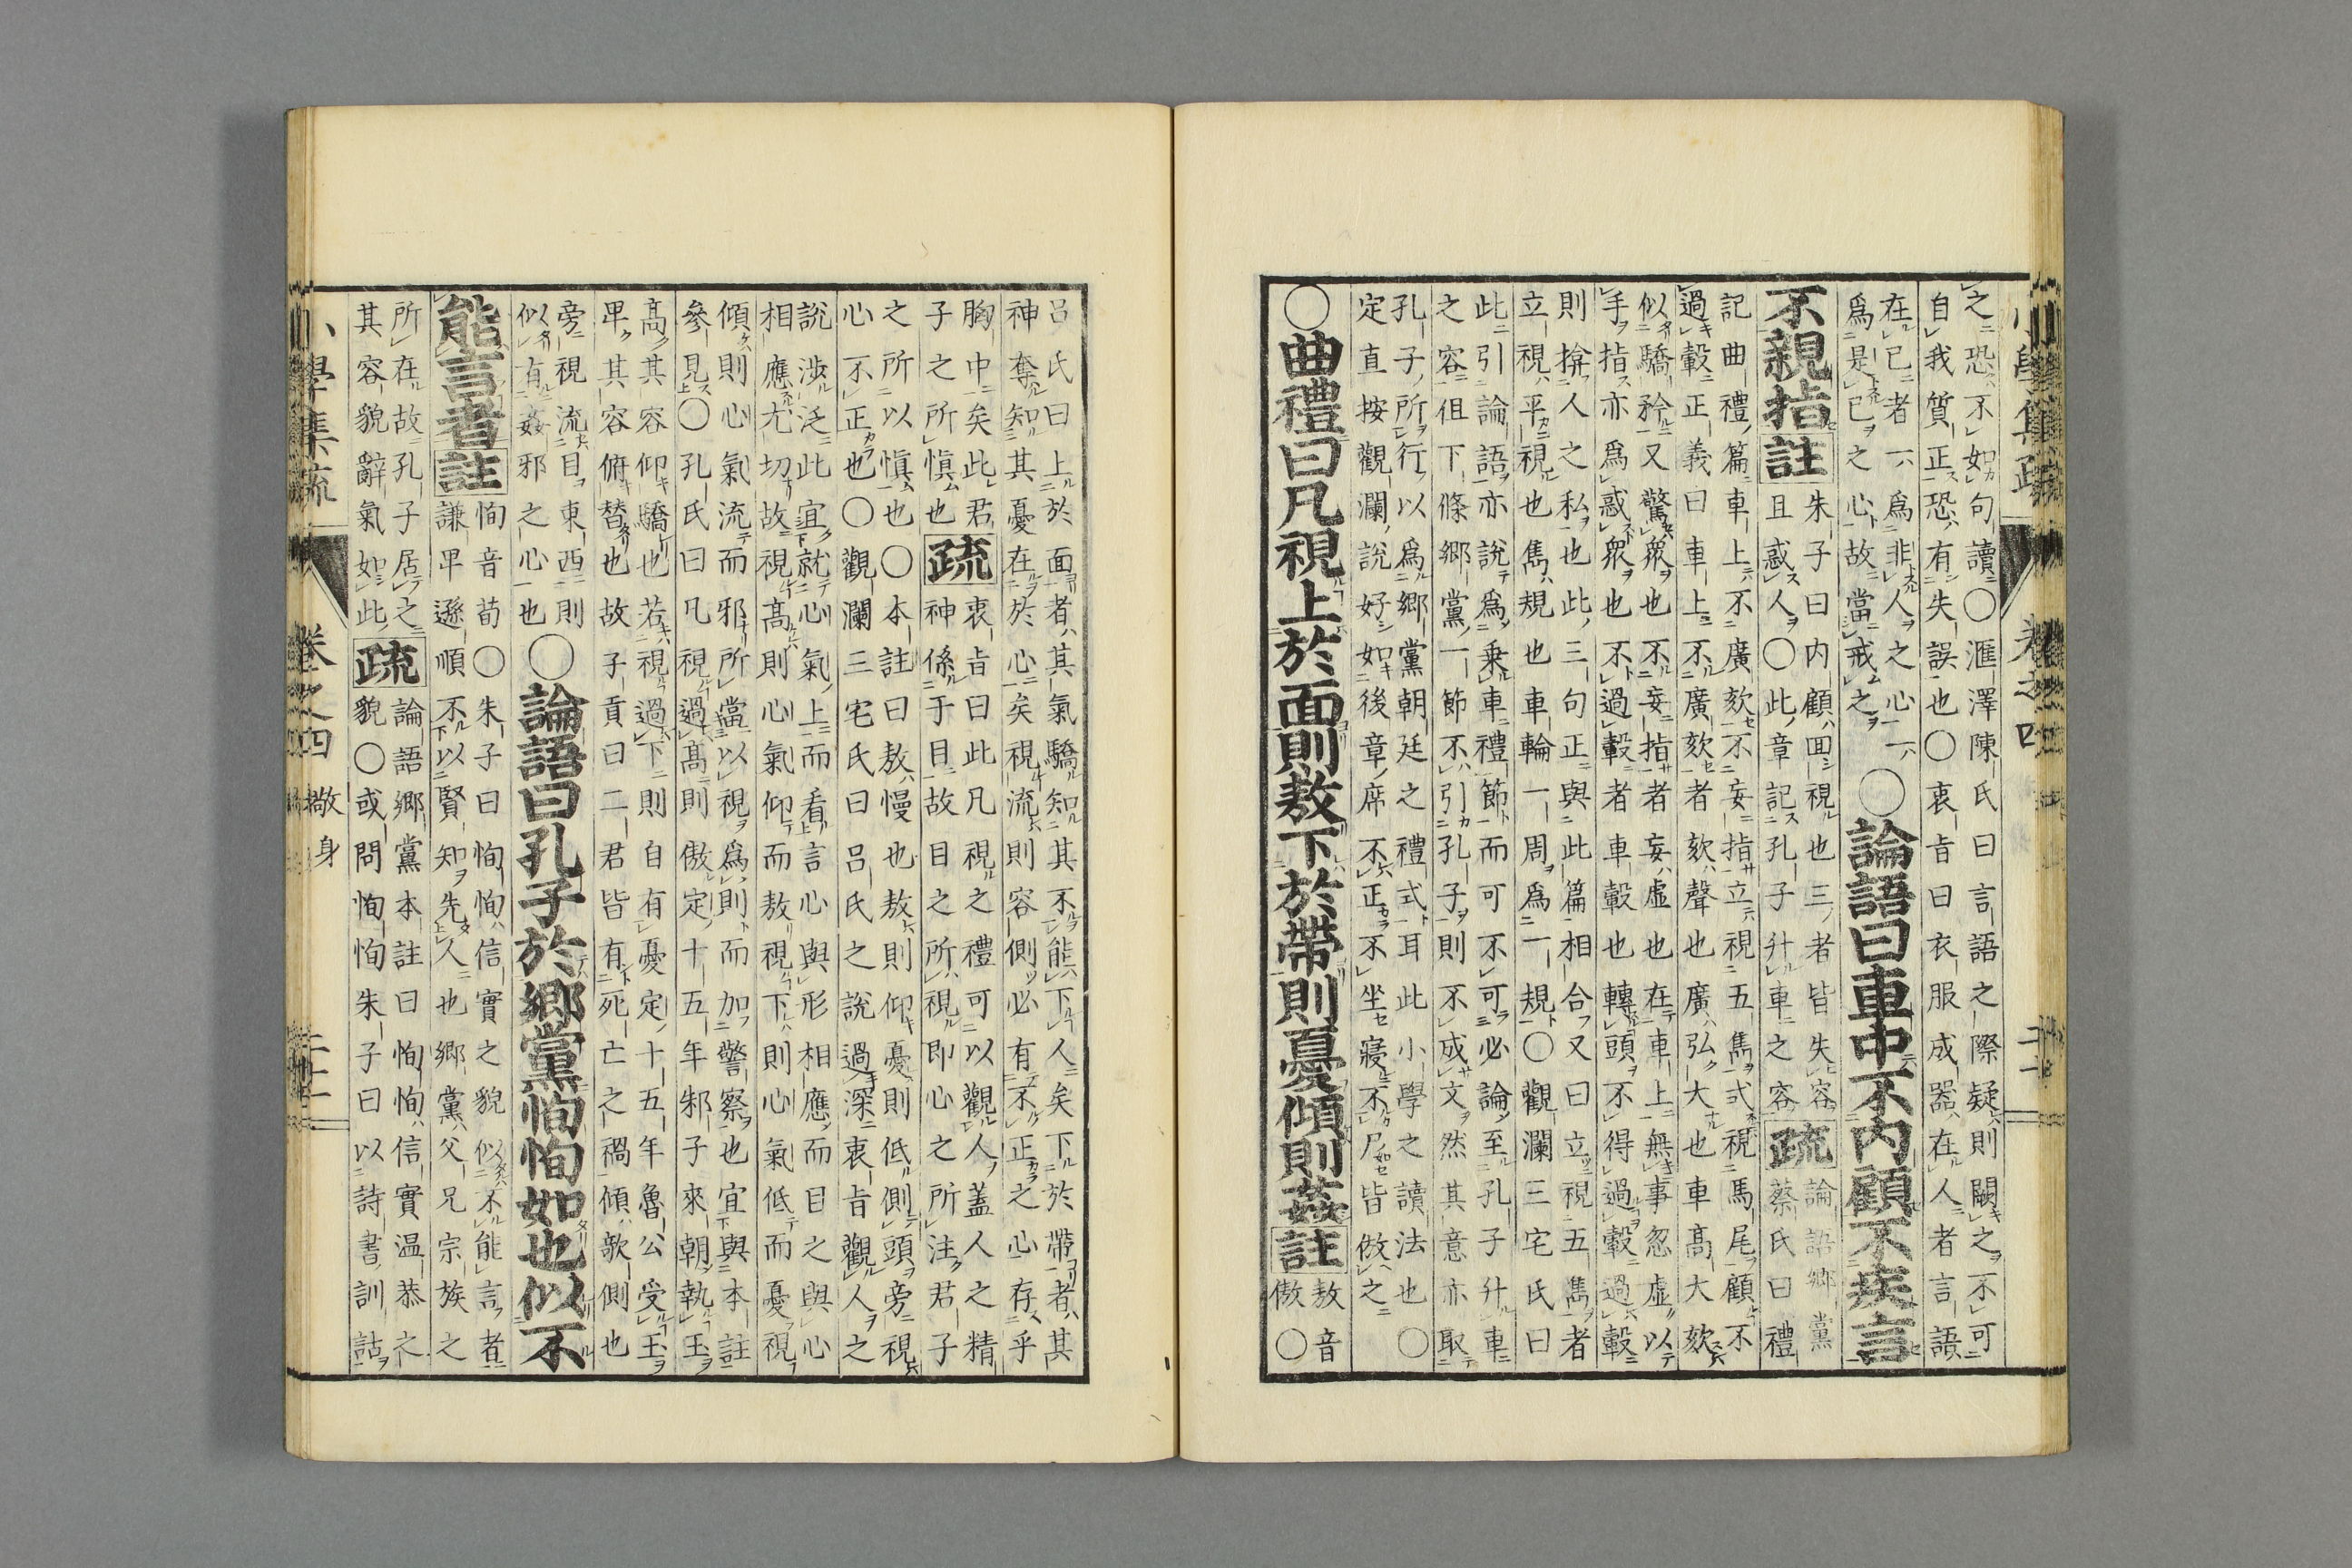 之恐不如句讀○滙澤陳氏曰言語之際疑則闕之不可
自我質正恐有失誤也○衷旨曰衣服成器在人者言語
在己者一爲非人之心一
爲是己之心故當戒之
○論語曰車中不內顧不疾言
不親指註
朱子曰內顧回視也三者皆失容
且惑人○此章記孔子升車之容疏論語鄕黨
蔡氏曰禮
記曲禮篇車上不廣欬不妄指立視五雋式視馬尾顧不
過轂正義曰車上不廣欬者欬聲也廣弘大也車高大欬
似驕矜又驚衆也不妄指者妄虛也在車上無事忽虛以
手指亦爲惑衆也不過轂者車轂也轉頭不得過轂過轂
則揜人之私也此三句正與此篇相合又曰立視五雋者
立視平視也雋規也車輪一周爲一規○觀瀾三宅氏曰
此引論語亦說爲乘車禮節而可不可必論至孔子升車
之容但下條鄕黨一節不引孔子則不成文然其意亦取
孔子所行以爲鄕黨朝廷之禮式耳此小學之讀法也○
定直按觀瀾說好如後章席不正不坐寢不尸皆倣之
○曲禮曰凡視上於面則敖下於帶則憂傾則姦註
敖音
傲○
小學集疏
卷之四
呂氏曰上於面者其氣驕知其不能下人矣下於帶者其
神奪知其憂在於心矣視流則容側必有不正之心存乎
胸中矣此君
子之所愼也疏
衷旨曰此凡視之禮可以觀人蓋人之精
神係于目故目之所視即心之所注君子
之所以愼也○本註曰敖慢也敖則仰憂則低側頭旁視
心不正也○觀瀾三宅氏曰呂氏之說過深衷旨觀人之
說涉泛此宜就心氣上而看言心與形相應而目之與心
相應尤切故視高則心氣仰而敖視下則心氣低而憂視
傾則心氣流而邪所當以視爲則而加警察也宜與本註
參見○孔氏曰凡視過高則傲定十五年邾子來朝執玉
高其容仰驕也若視過下則自有憂定十五年魯公受玉
卑其容俯替也故子貢曰二君皆有死亡之禍傾欹側也
旁視流目東西則
似有姦邪之心也
○論語曰孔子於鄕黨恂恂如也似不
能言者註
恂音荀○朱子曰恂恂信實之貌似不能言者
謙卑遜順不以賢知先人也鄕黨父兄宗族之
所在故孔子居之
其容貌辭氣如此疏
論語鄕黨本註曰恂恂信實温恭之
貌○或問恂恂朱子曰以詩書訓詁
小學集疏
卷之四
敬身